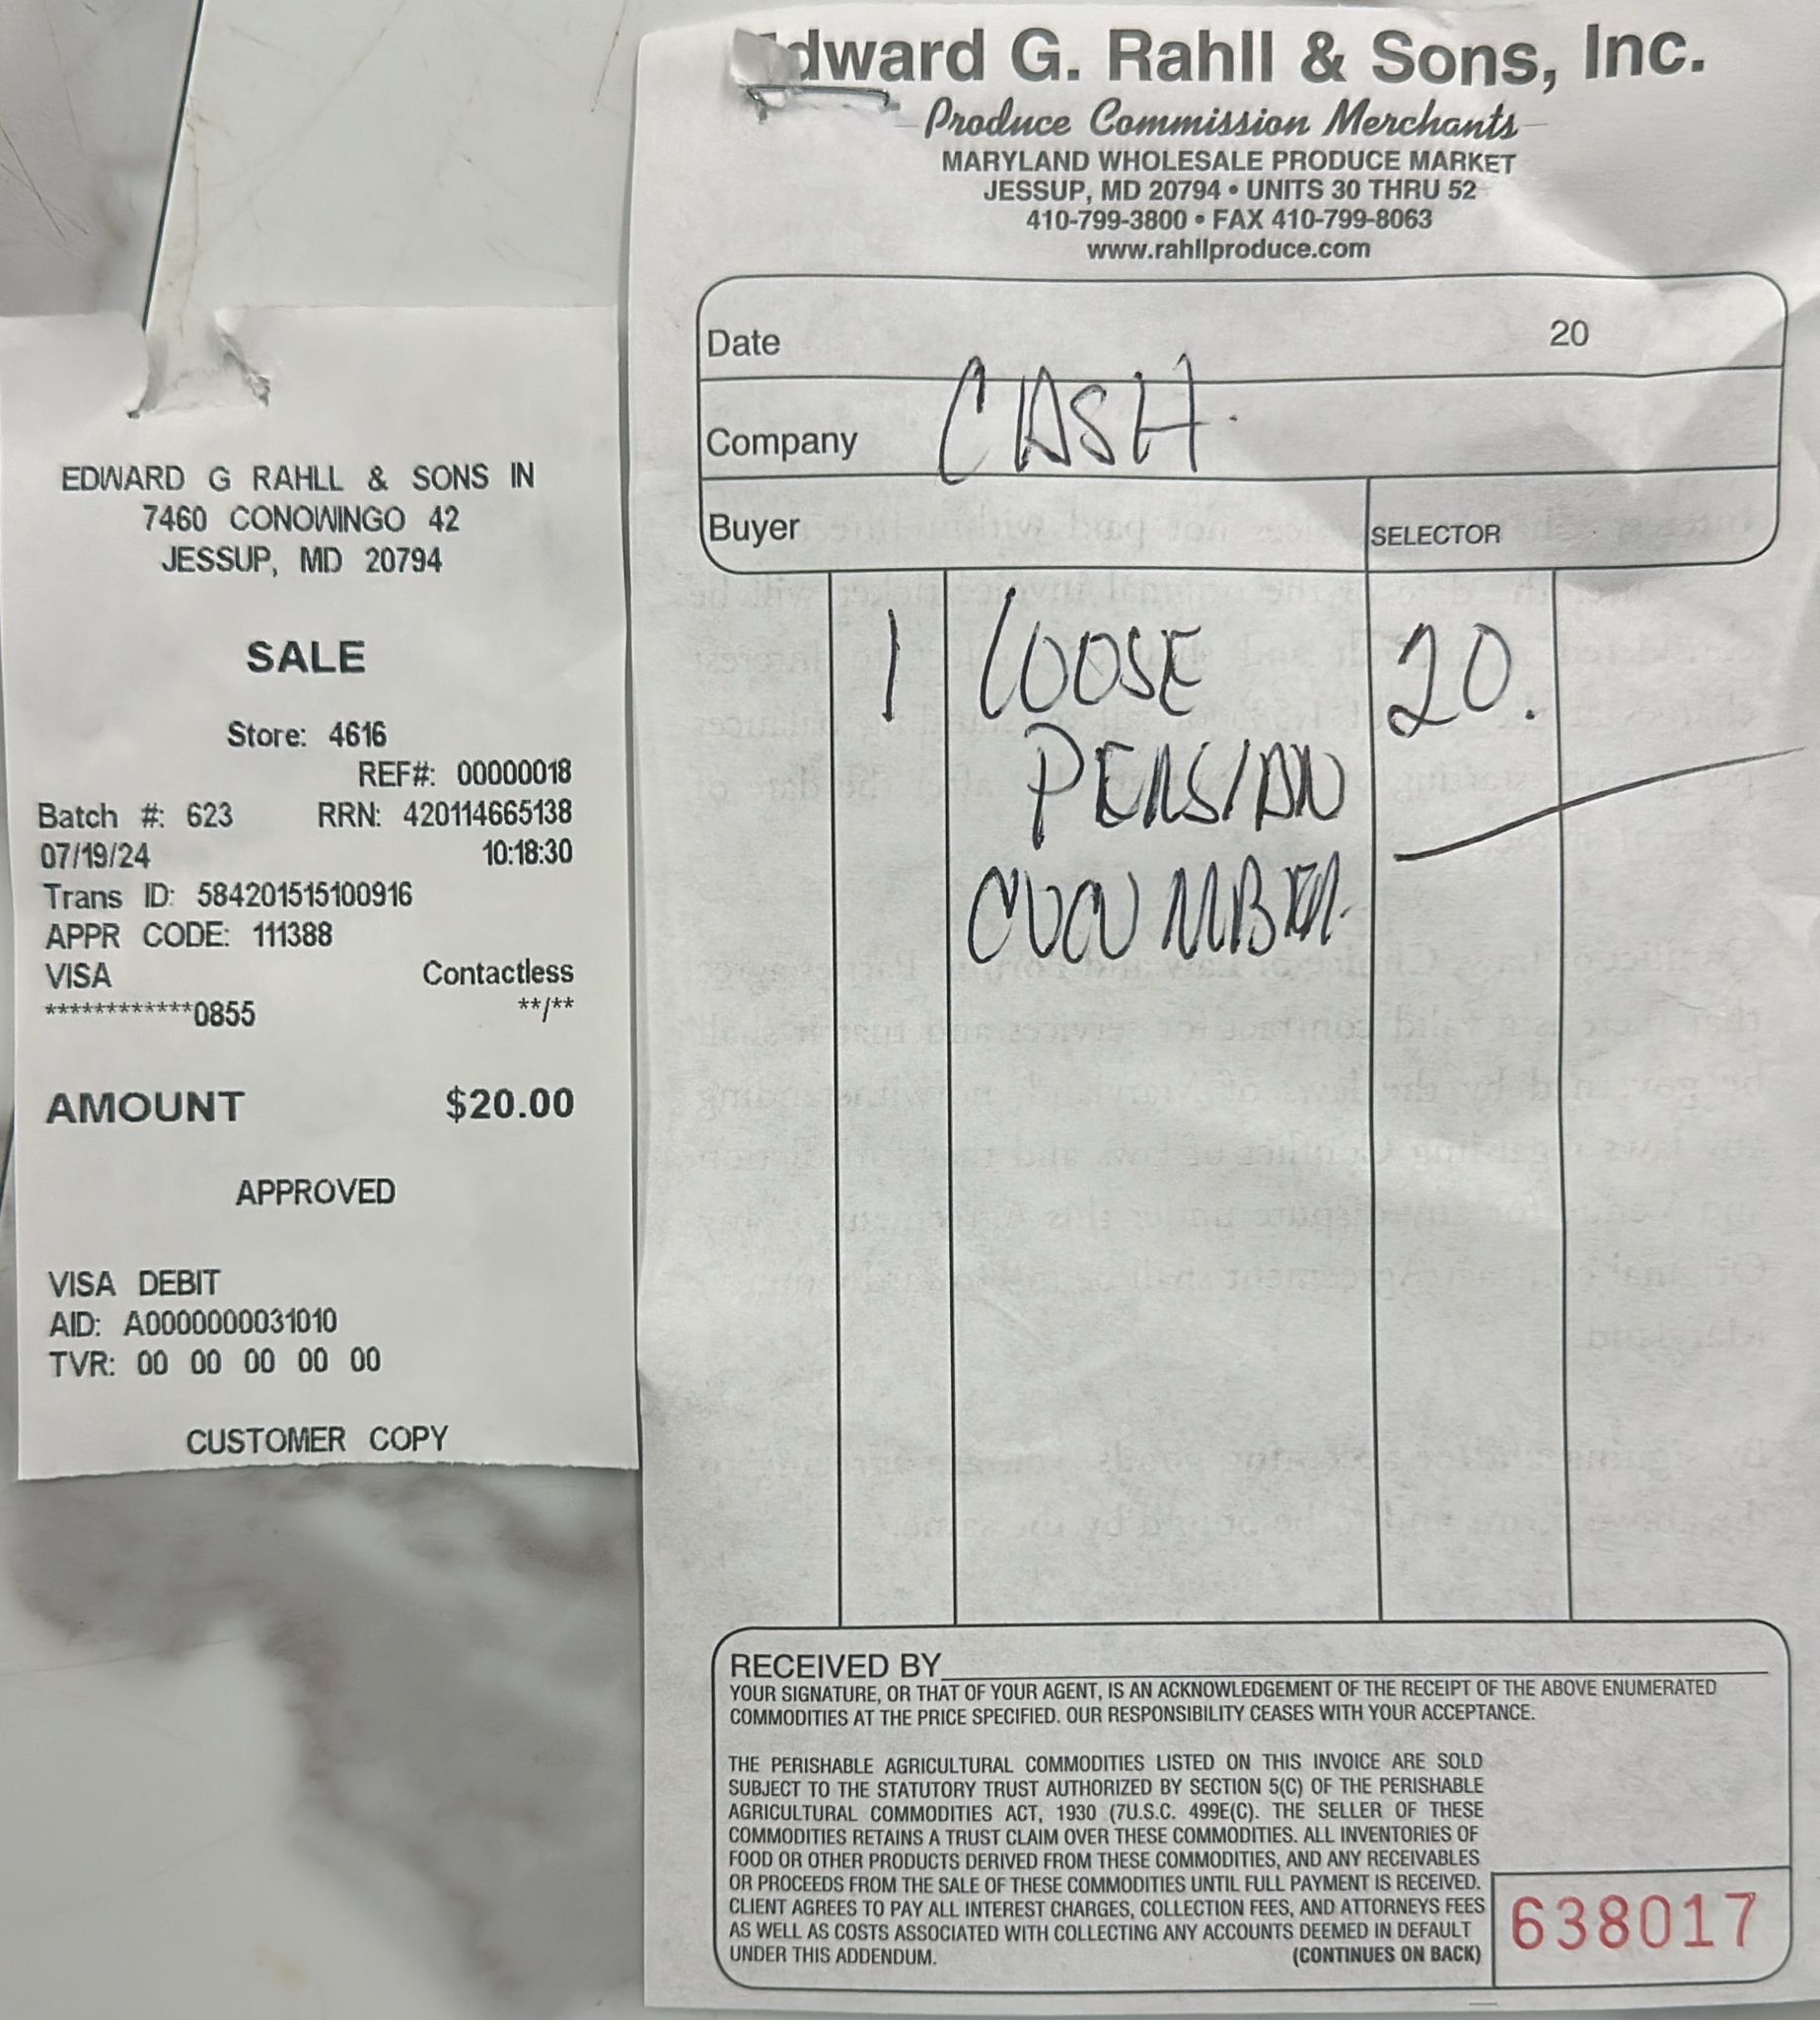 EDWARD G RAHLL & SONS IN
7460 CONOWINGO 42
JESSUP, MD 20794
SALE
Store: 4616
REF#: 00000018
Batch #: 623 RRN: 420114665138
07/19/24 10:18:30
Trans ID: 584201515100916
APPR CODE: 111388
VISA Contactless
************0855 **/**
AMOUNT $20.00
APPROVED
VISA DEBIT
AID: A0000000031010
TVR: 00 00 00 00 00
CUSTOMER COPY
Edward G. Rahll & Sons, Inc.
Produce Commission Merchants
MARYLAND WHOLESALE PRODUCE MARKET
JESSUP, MD 20794 • UNITS 30 THRU 52
410-799-3800 • FAX 410-799-8063
www.rahllproduce.com
Date 20
Company CASH
Buyer SELECTOR
1 LOOSE 20.
PERSIAN
CUCUMBER
RECEIVED BY
YOUR SIGNATURE, OR THAT OF YOUR AGENT, IS AN ACKNOWLEDGEMENT OF THE RECEIPT OF THE ABOVE ENUMERATED
COMMODITIES AT THE PRICE SPECIFIED. OUR RESPONSIBILITY CEASES WITH YOUR ACCEPTANCE.
THE PERISHABLE AGRICULTURAL COMMODITIES LISTED ON THIS INVOICE ARE SOLD
SUBJECT TO THE STATUTORY TRUST AUTHORIZED BY SECTION 5(C) OF THE PERISHABLE
AGRICULTURAL COMMODITIES ACT, 1930 (7U.S.C. 499E(C). THE SELLER OF THESE
COMMODITIES RETAINS A TRUST CLAIM OVER THESE COMMODITIES. ALL INVENTORIES OF
FOOD OR OTHER PRODUCTS DERIVED FROM THESE COMMODITIES, AND ANY RECEIVABLES
OR PROCEEDS FROM THE SALE OF THESE COMMODITIES UNTIL FULL PAYMENT IS RECEIVED.
CLIENT AGREES TO PAY ALL INTEREST CHARGES, COLLECTION FEES, AND ATTORNEYS FEES
AS WELL AS COSTS ASSOCIATED WITH COLLECTING ANY ACCOUNTS DEEMED IN DEFAULT
UNDER THIS ADDENDUM. (CONTINUES ON BACK)
638017